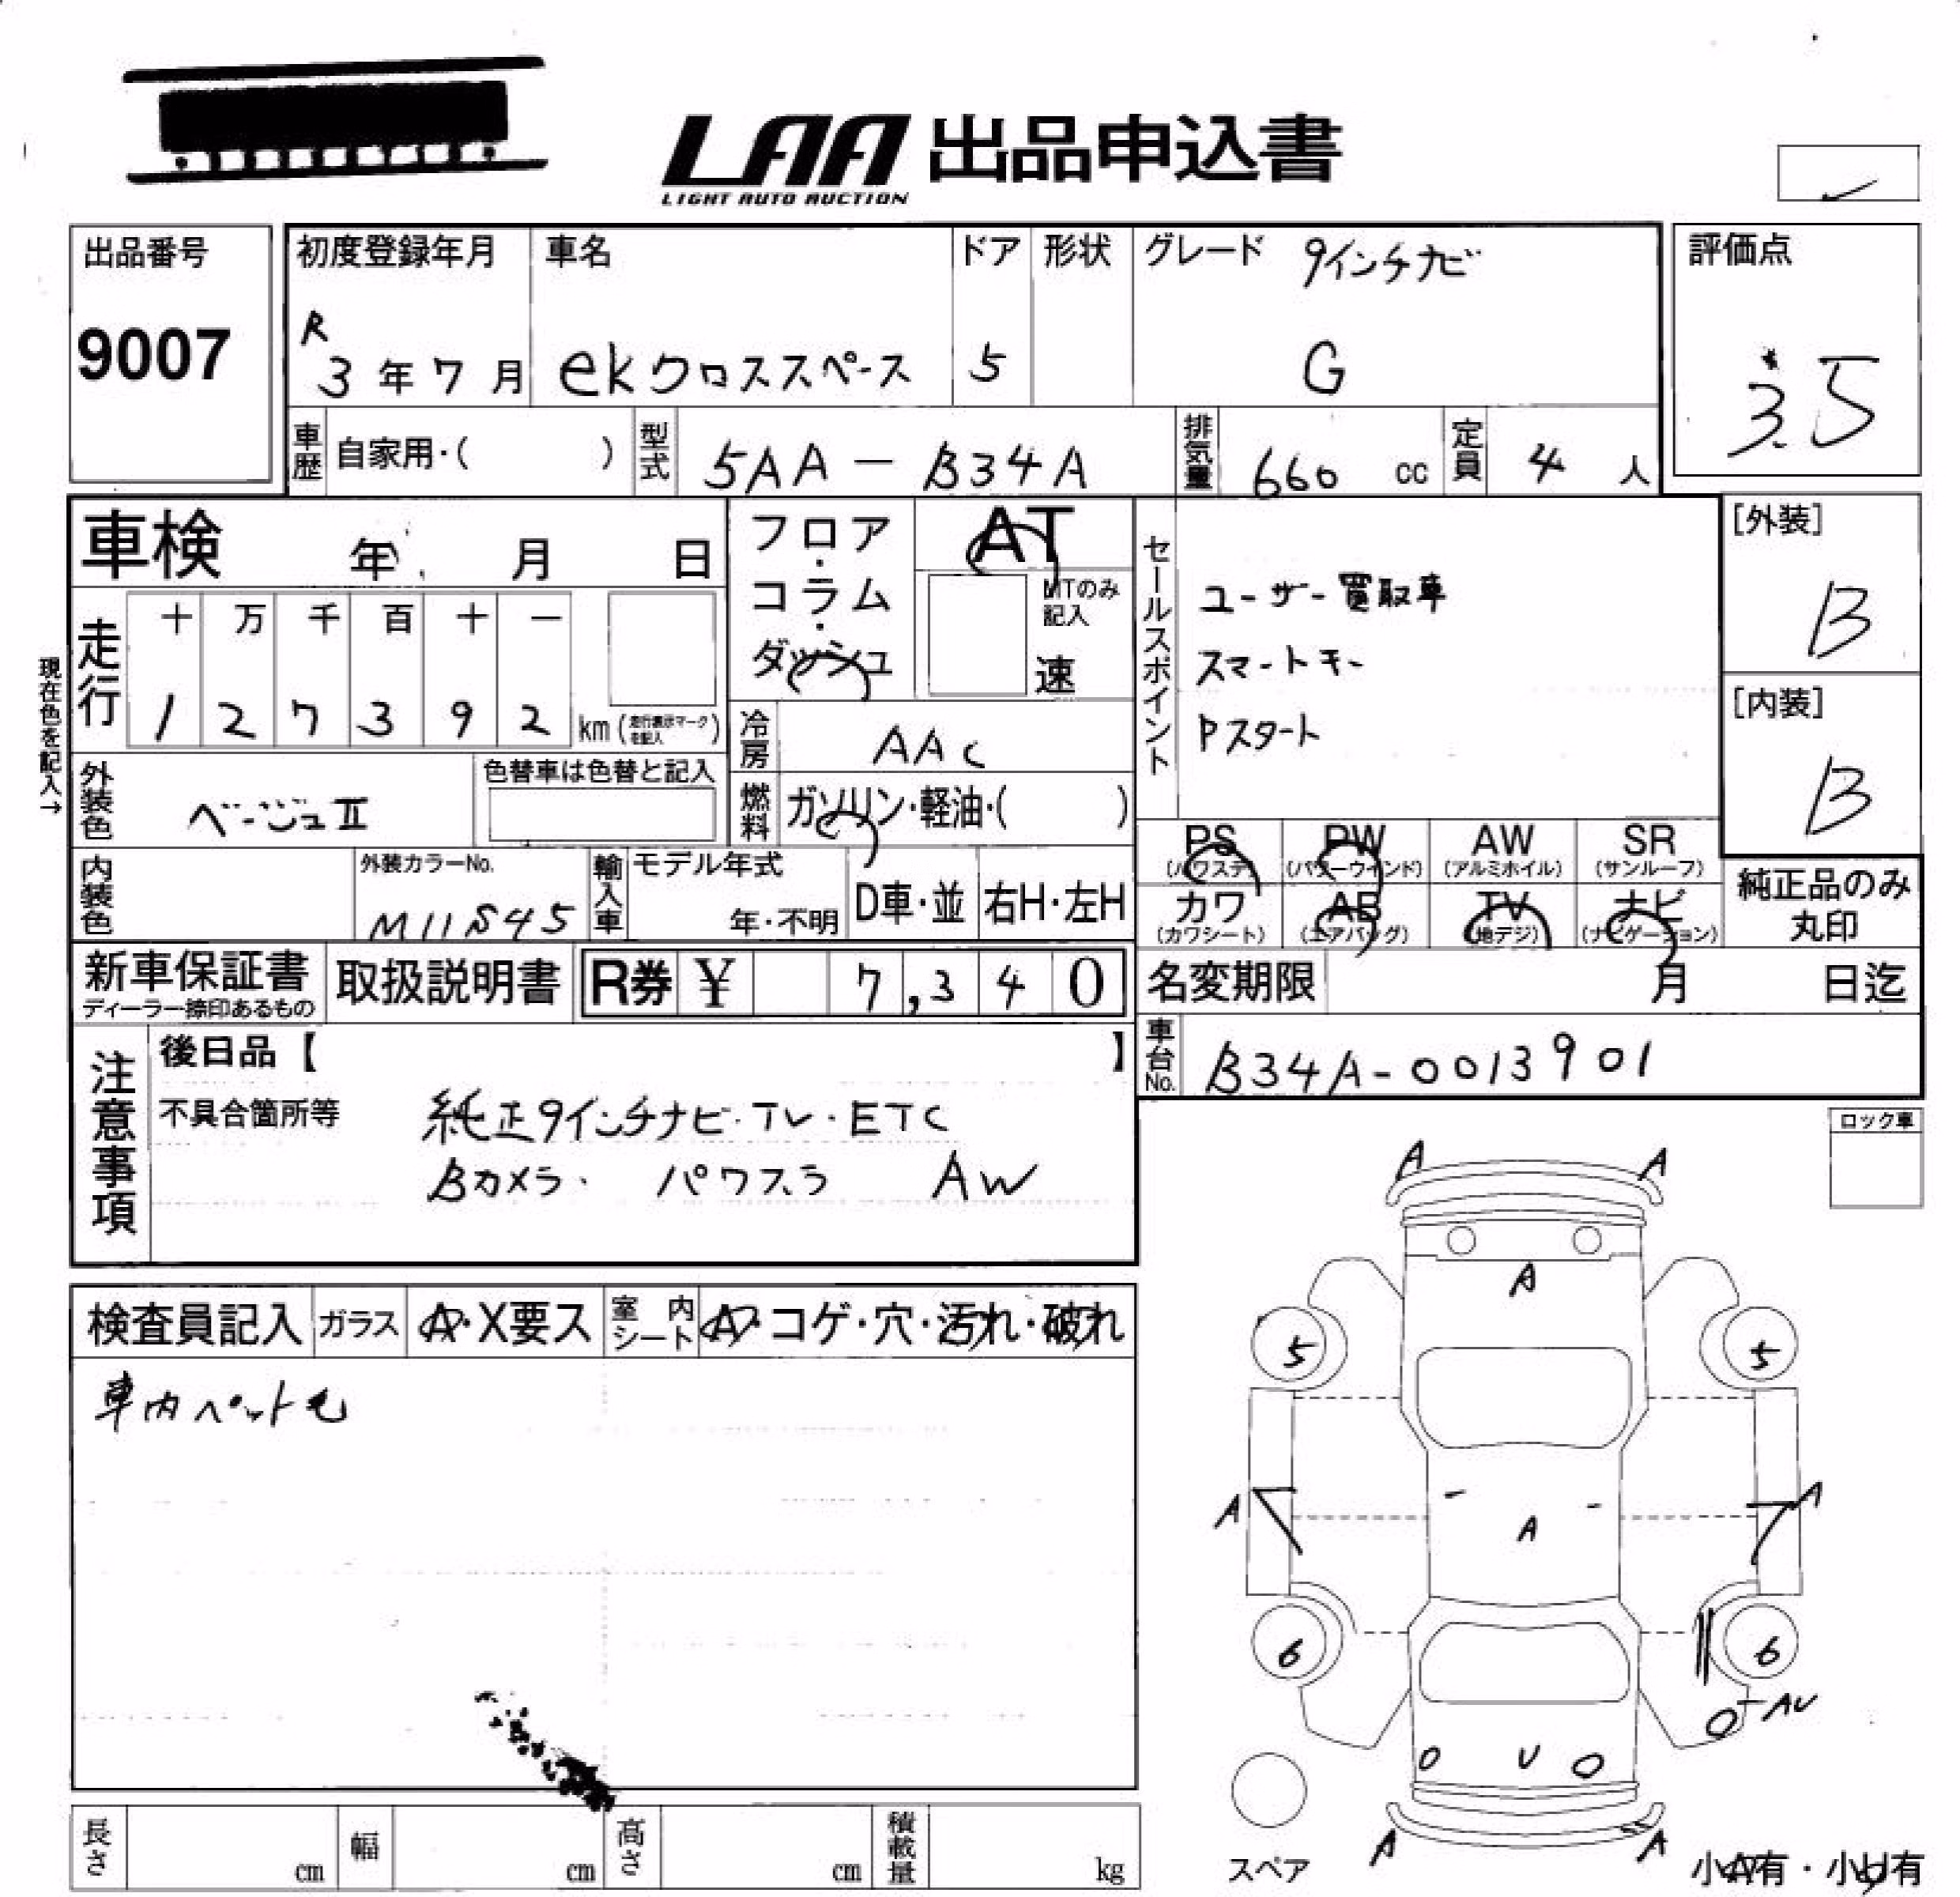 LAA 出品申込書
LIGHT AUTO AUCTION
出品番号
9007
初度登録年月
R
3 年 7 月
車名
ekクロススペース
ドア
5
形状
グレード 9インチナビ
G
評価点
3.5
車歴 自家用・( )
型式 5AA-B34A
排気量 660 cc
定員 4 人
車検 年 月 日
フロア・コラム・ダッシュ
AT
MTのみ記入
速
セールスポイント
ユーザー買取車
スマートキー
Pスタート
[外装]
B
[内装]
B
現在色を記入→
走行
十 万 千 百 十 一
1 2 7 3 9 2 km (走行表示マークを記入)
冷房 AAC
外装色 ベージュII
色替車は色替と記入
燃料 ガソリン・軽油・( )
内装色
外装カラーNo.
M11S45
輸入車 モデル年式
年・不明
D車・並
右H・左H
PS (パワステ)
PW (パワーウインド)
AW (アルミホイル)
SR (サンルーフ)
カワ (カワシート)
AB (エアバッグ)
TV (地デジ)
ナビ (ナビゲーション)
純正品のみ丸印
新車保証書
ディーラー捺印あるもの
取扱説明書
R券 ¥ 7,340
名変期限 月 日迄
車台No. B34A-0013901
注意事項
後日品【 】
不具合箇所等
純正9インチナビ・TV・ETC
Bカメラ・ パワスラ AW
ロック車
検査員記入 ガラス A・X要ス 室内シート A・コゲ・穴・汚れ・破れ
車内ペット毛
A A
A
5 5
A A
A
6 6
AU
U
A A
スペア
小A有・小U有
長さ cm 幅 cm 高さ cm 積載量 kg